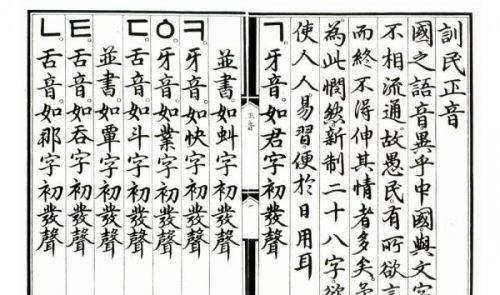 訓民正音
國之語音異乎中國與文字
不相流通。故愚民有所欲言
而終不得伸其情者多矣。予
為此憫然新制二十八字欲
使人人易習便於日用耳
ㄱ。牙音。如君字初發聲
並書。如虯字初發聲
ㅋ。牙音。如快字初發聲
ㆁ。牙音。如業字初發聲
ㄷ。舌音。如斗字初發聲
並書。如覃字初發聲
ㅌ。舌音。如呑字初發聲
ㄴ。舌音。如那字初發聲